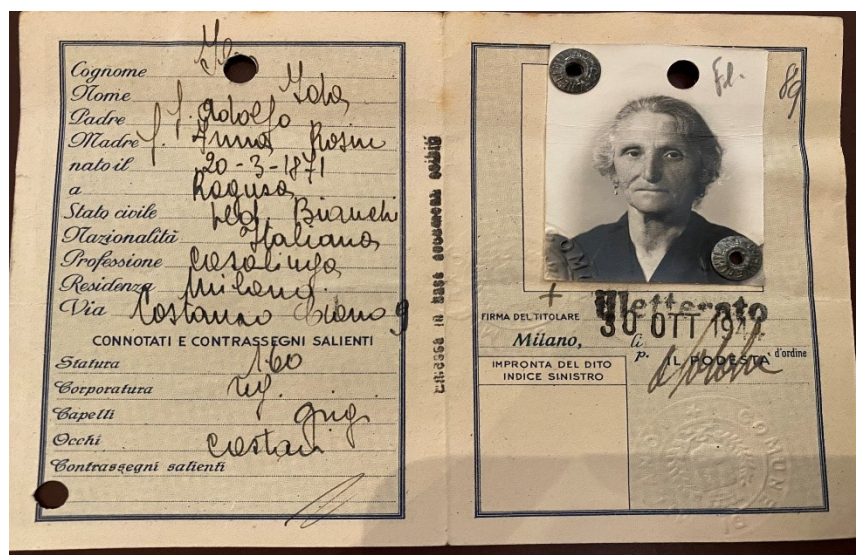 Cognome
Nome
Padre f. Adolfo
Madre f. Anna Rosini
nato il 20-3-1871
a Ragusa
Stato civile ved. Bianchi
Nazionalità Italiana
Professione casalinga
Residenza Milano
Via Costanzo Ciano 9
CONNOTATI E CONTRASSEGNI SALIENTI
Statura 160
Corporatura reg.
Capelli grigi
Occhi castani
Contrassegni salienti
emessa in base documenti esibiti
89
COMUNE
+ Illetterato
FIRMA DEL TITOLARE
30 OTT
Milano, li
p. IL PODESTÀ d'ordine
IMPRONTA DEL DITO
INDICE SINISTRO
COMUNE